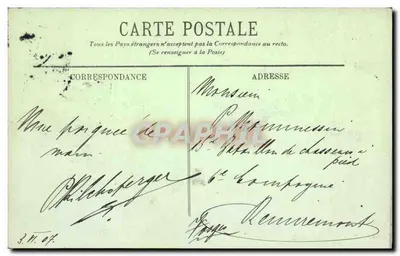 CARTE POSTALE
Tous les Pays étrangers n'acceptent pas la Correspondance au recto.
(Se renseigner à la Poste)
CORRESPONDANCE
ADRESSE
Une poignée de
main
3. VI. 07.
Monsieur
Bataillon de chasseurs à
pied
6e Compagnie
Remiremont
Vosges
CARTORUM